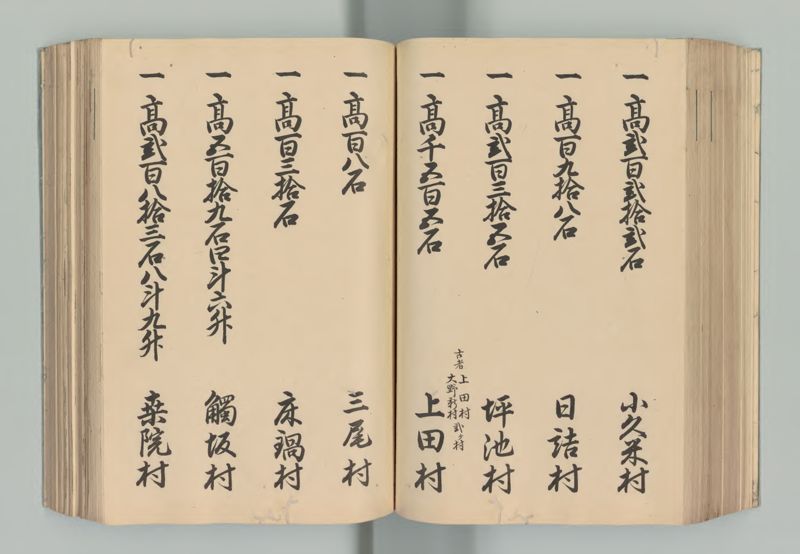 一 高弐百弐拾弐石 小久米村
一 高百九拾八石 日詰村
一 高弐百三拾五石 坪池村
一 高千五百五石 上田村
古者 上田村 大野新村 弐ケ村
一 高百八石 三尾村
一 高百三拾石 床鍋村
一 高五百拾九石四斗六升 觸坂村
一 高弐百八拾三石八斗九升 桑院村